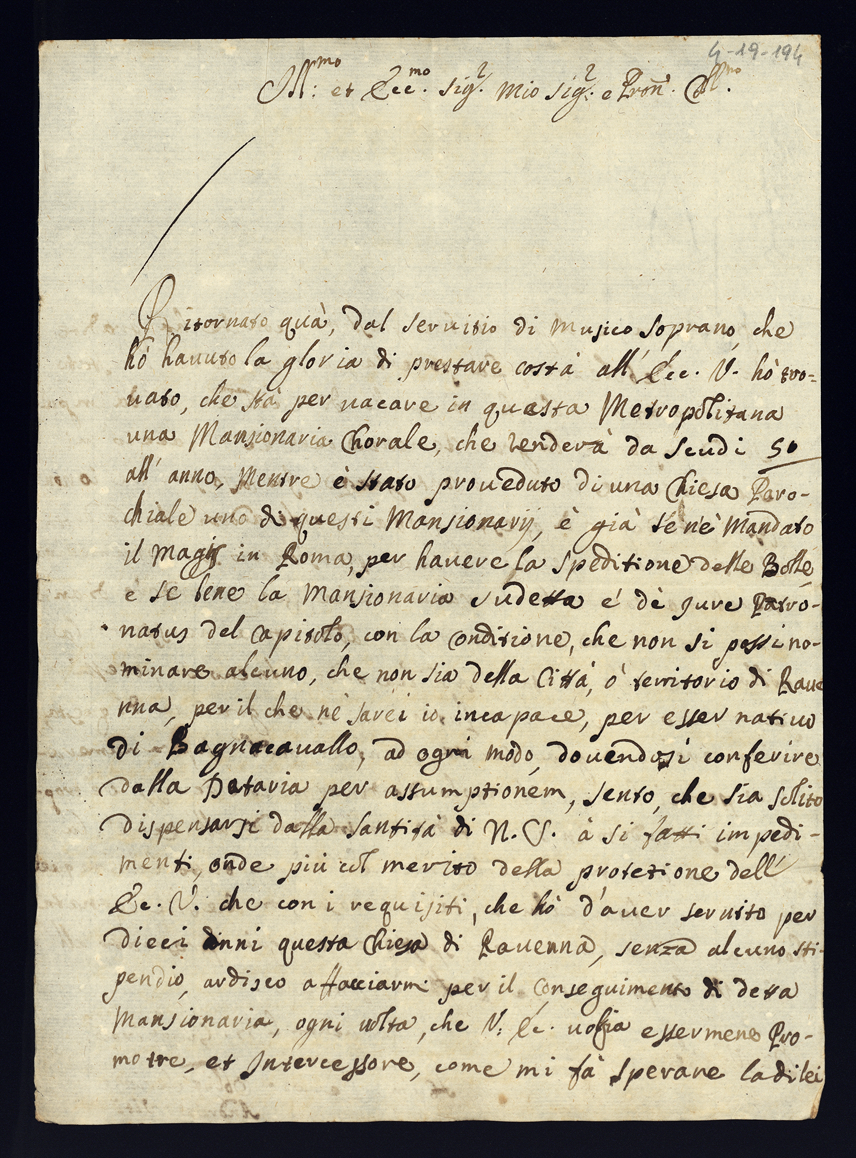 4-19-194
Ill:mo et Ecc:mo Sig.r Mio Sig.r e Pron. Col.mo
Ritornato quà, dal seruitio di Musico Soprano, che
hò hauuto la gloria di prestare costà all' Ecc. V. hò tro=
uato, che stà per uacare in questa Metropolitana
una Mansionaria Chorale, che renderà da Scudi 50
all' anno, Mentre è stato proueduto di una Chiesa Paro-
chiale uno di questi Mansionarij, è già se n'è Mandato
il in Roma, per hauere la speditione delle Bolle
è se bene la Mansionaria sudetta é dè jure Patro-
natus del Capitolo, con la Conditione, che non si possi no-
minare alcuno, che non sia della Città, ó territorio di Raue
nna, per il che nè sarei io incapace, per esser natiuo
di Bagnacauallo, ad ogni modo, douendosi conferire
dalla Dataria per assumptionem, sento, che sia solito
dispensarsi dalla Santità di N. S. à si fatti impedi-
menti, onde più col merito della protetione dell'
Ec. V. che con i requisiti, che hò d'auer seruito per
dieci anni questa Chiesa di Rauenna, senza alcuno sti-
pendio, ardisco affacciarmi per il Conseguimento di detta
Mansionaria, ogni uolta, che V. Ec. uoglia essermene Pro-
motre, et Intercessore, come mi fà sperare la di lei